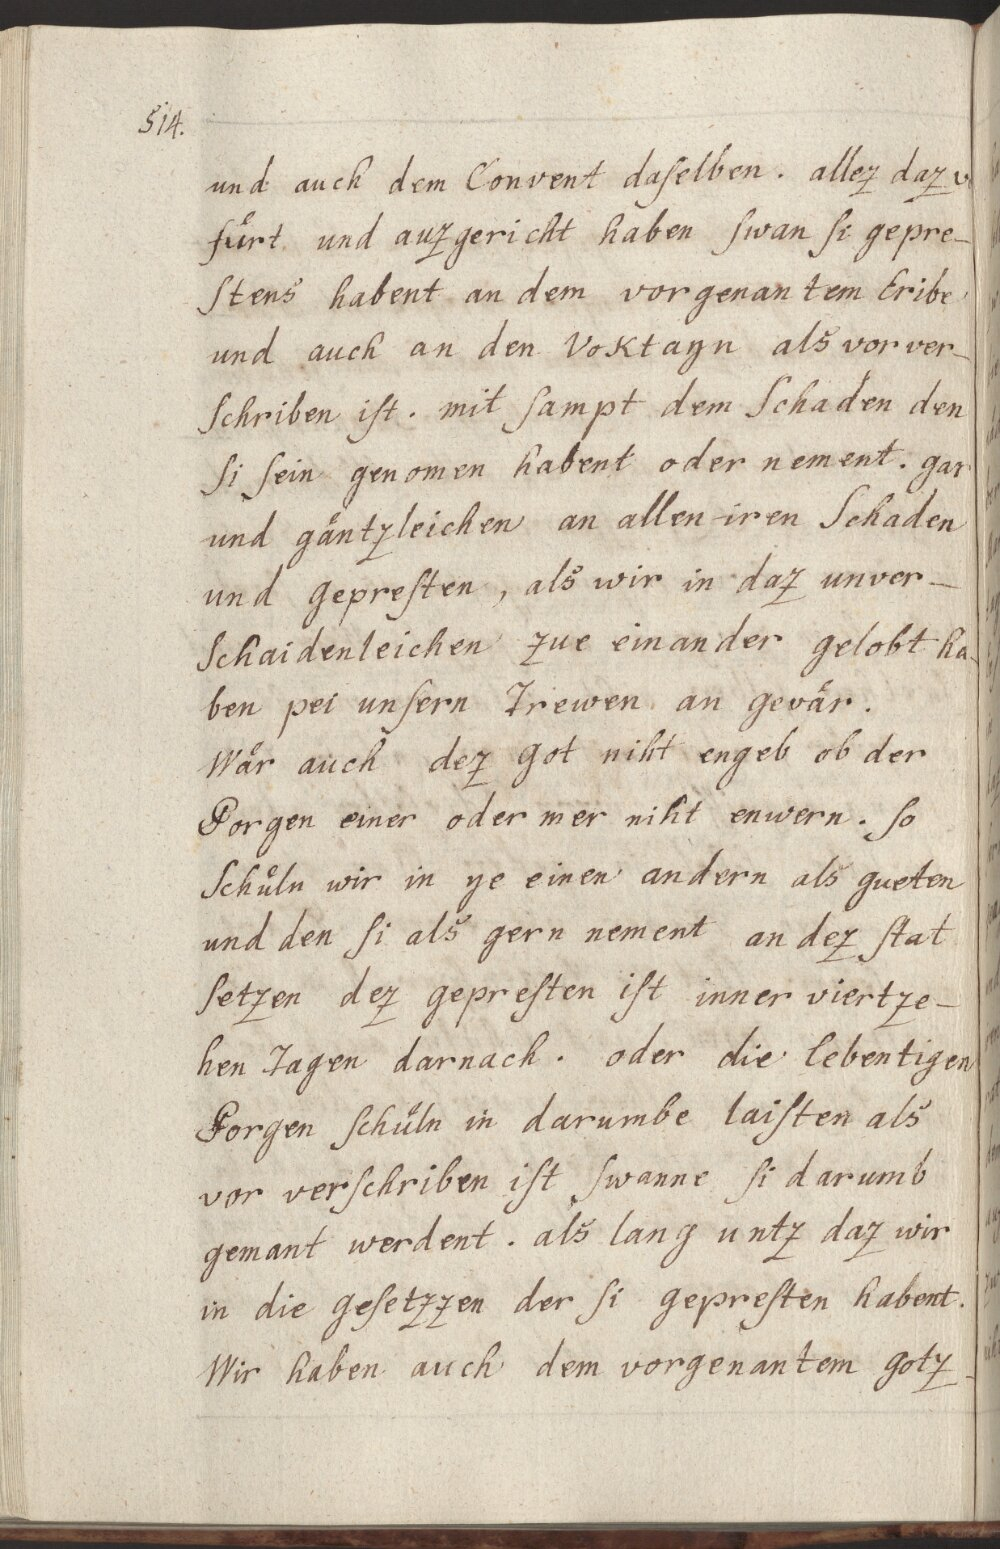 514.
und auch dem Convent daſelben. allez daz v
fuͤrt und auzgericht haben ſwan ſi gepre-
ſtens habent an dem vorgenantem Eribe
und auch an den Voktayn als vorver-
ſchriben iſt. mit ſampt dem Schaden den
ſi ſein genomen habent oder nement. gar
und gäntzleichen an allen iren Schaden
und gepreſten, als wir in daz unver-
ſchaidenleichen zue einander gelobt ha-
ben pei unſern Trewen an gevär.
Wär auch dez got niht engeb ob der
Porgen einer oder mer niht enwern. ſo
ſchuͤln wir in ye einen andern als gueten
und den ſi als gern nement an dez ſtat
ſetzen dez gepreſten iſt inner viertze-
hen Tagen darnach. oder die lebentigen
Porgen ſchuͤln in darumbe laiſten als
vor verſchriben iſt ſwanne ſi darumb
gemant werdent. als lang untz daz wir
in die geſetzzen der ſi gepreſten habent.
Wir haben auch dem vorgenantem gotz-